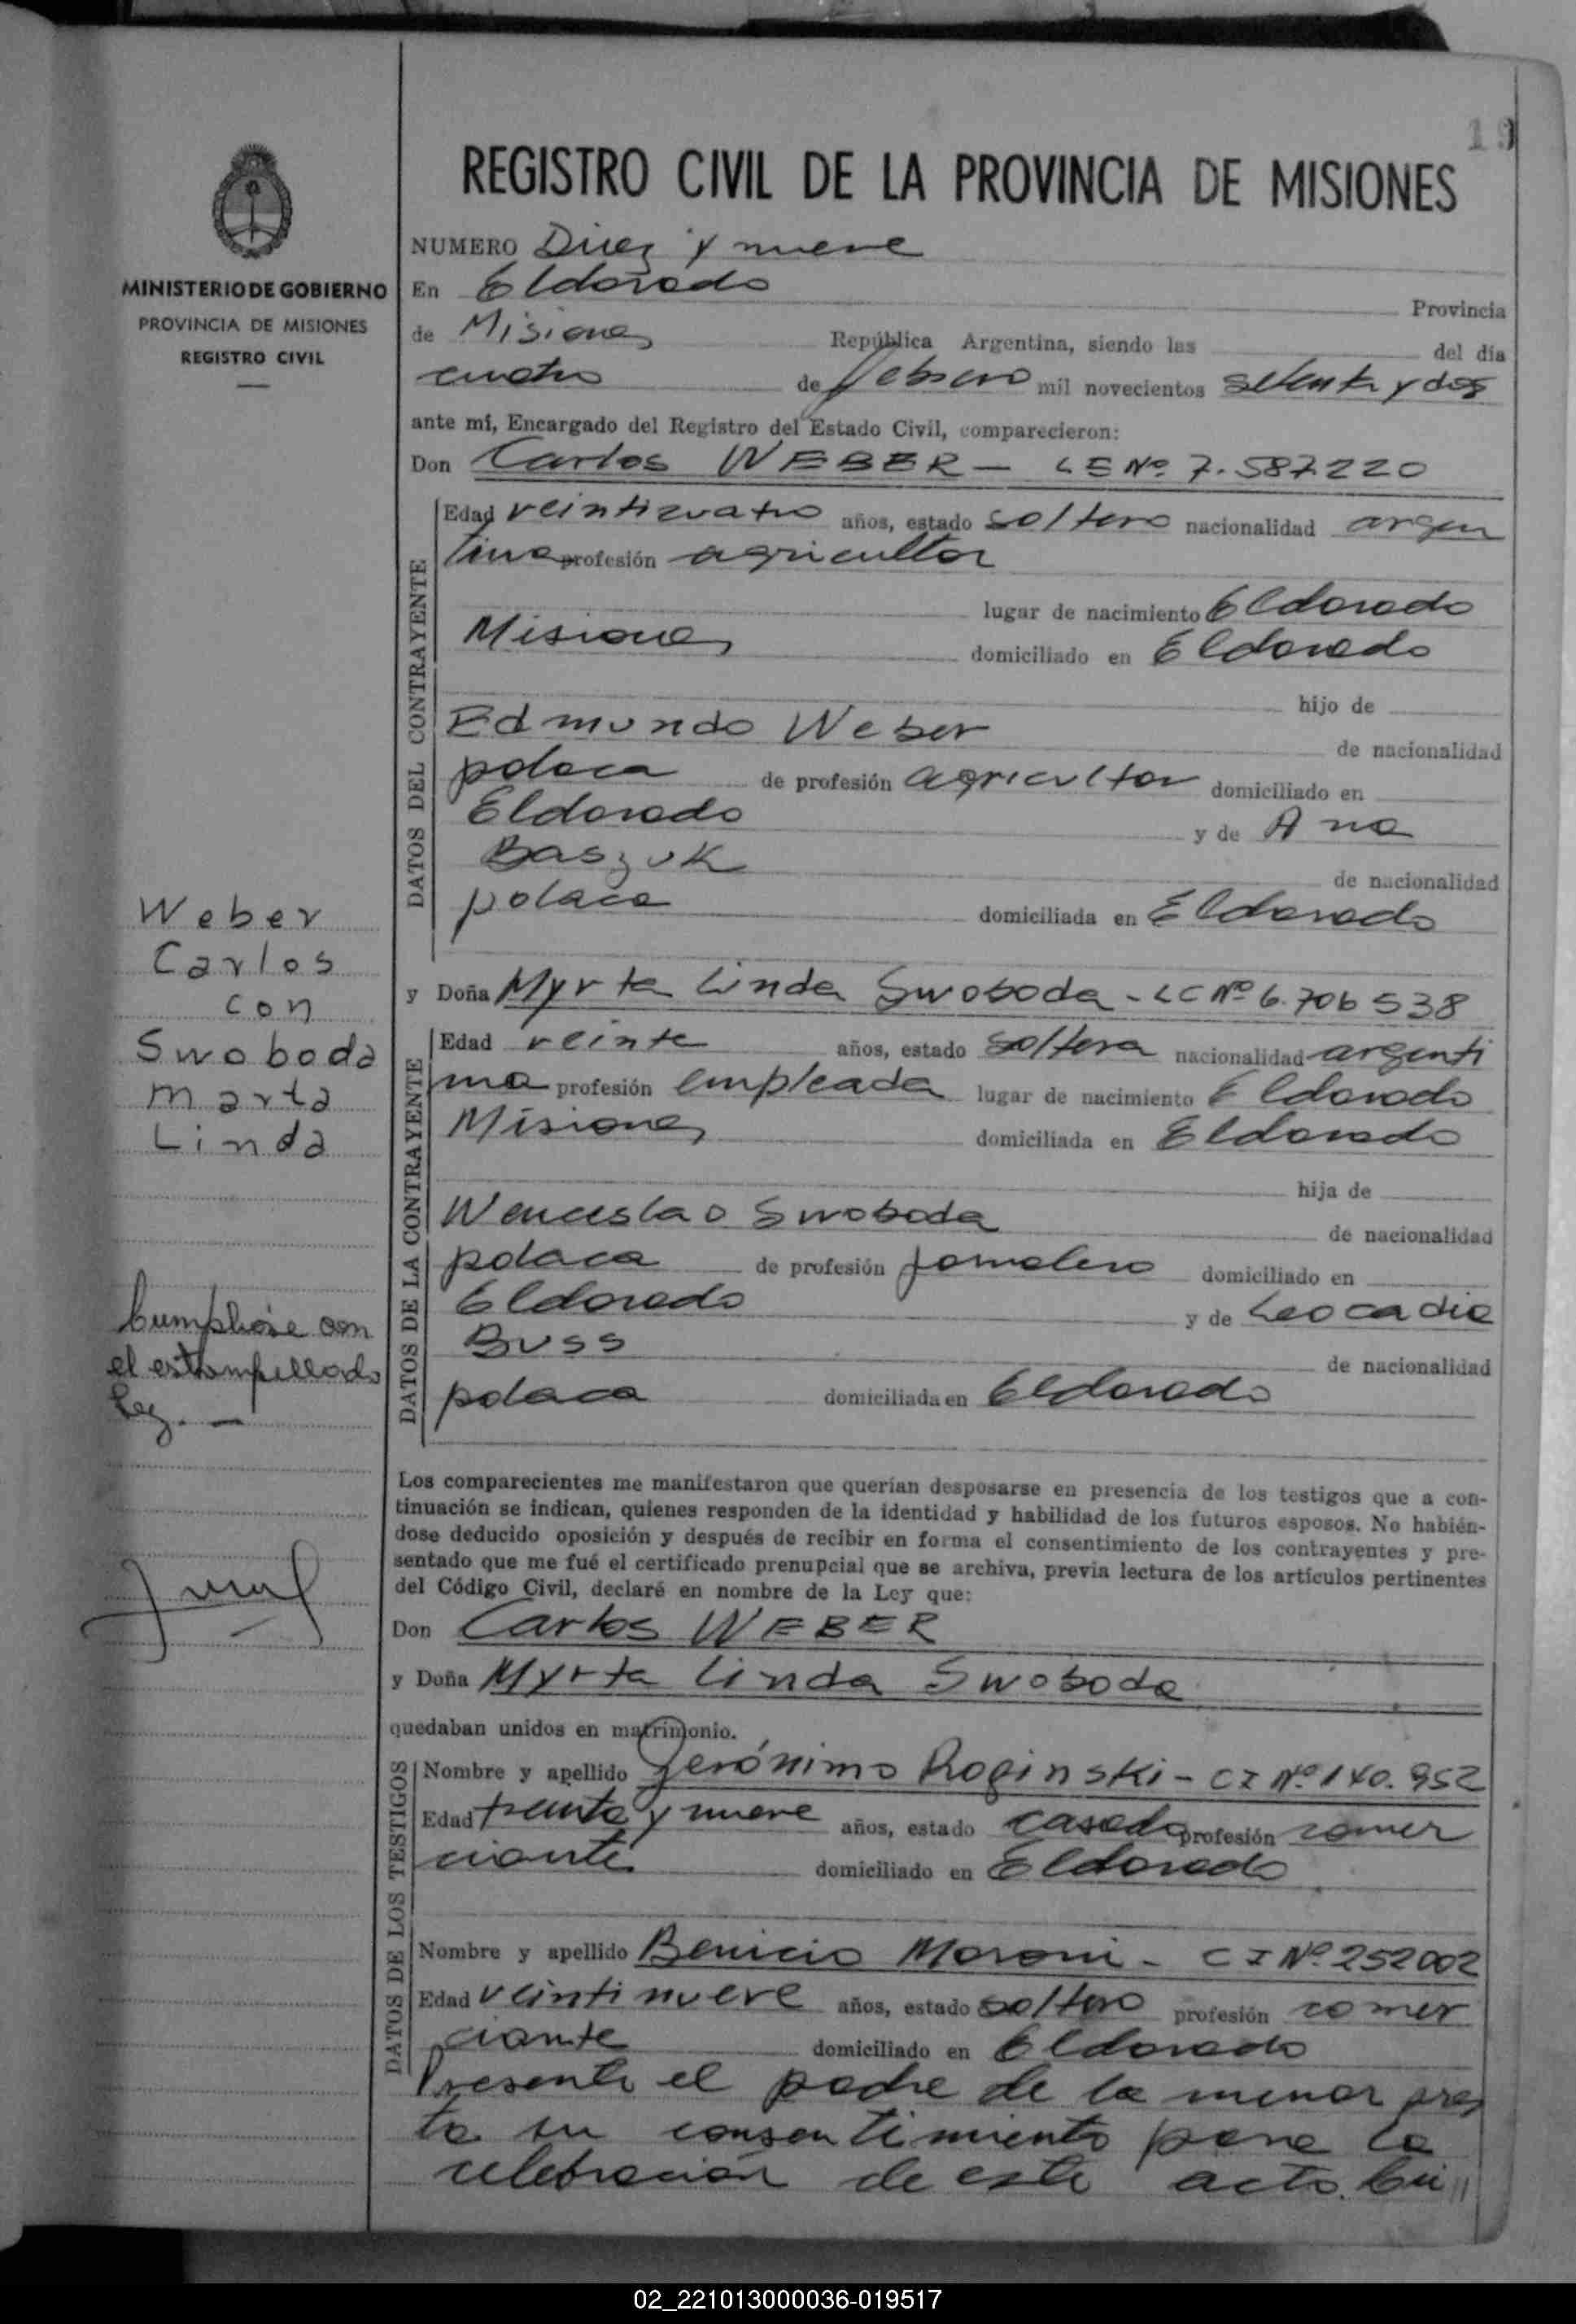 19
REGISTRO CIVIL DE LA PROVINCIA DE MISIONES
MINISTERIO DE GOBIERNO
PROVINCIA DE MISIONES
REGISTRO CIVIL
NUMERO Diez y nueve
En Eldorado Provincia
de Misiones República Argentina, siendo las del día
cuatro de febrero mil novecientos setenta y dos
ante mí, Encargado del Registro del Estado Civil, comparecieron:
Don Carlos WEBER - LE Nº 7.587.220
DATOS DEL CONTRAYENTE
Edad veinticuatro años, estado soltero nacionalidad argen
tina profesión agricultor
lugar de nacimiento Eldorado
Misiones domiciliado en Eldorado
hijo de
Edmundo Weber de nacionalidad
polaca de profesión agricultor domiciliado en
Eldorado y de Ana
Baszuk de nacionalidad
polaca domiciliada en Eldorado
Weber
Carlos
con
Swoboda
Marta
Linda
y Doña Myrta Linda Swoboda - LC Nº 6.706538
DATOS DE LA CONTRAYENTE
Edad veinte años, estado soltera nacionalidad argenti
na profesión empleada lugar de nacimiento Eldorado
Misiones domiciliada en Eldorado
hija de
Wenceslao Swoboda de nacionalidad
polaca de profesión jornalero domiciliado en
Eldorado y de Leocadia
Buss de nacionalidad
polaca domiciliada en Eldorado
Cumplióse con
el estampillado
ley. -
Los comparecientes me manifestaron que querían desposarse en presencia de los testigos que a con-
tinuación se indican, quienes responden de la identidad y habilidad de los futuros esposos. No habién-
dose deducido oposición y después de recibir en forma el consentimiento de los contrayentes y pre-
sentado que me fué el certificado prenupcial que se archiva, previa lectura de los artículos pertinentes
del Código Civil, declaré en nombre de la Ley que:
Don Carlos WEBER
y Doña Myrta Linda Swoboda
quedaban unidos en matrimonio.
DATOS DE LOS TESTIGOS
Nombre y apellido Jerónimo Roginski - CI Nº 140.952
Edad treinta y nueve años, estado casado profesión comer
ciante domiciliado en Eldorado
Nombre y apellido Benicio Moroni - CI Nº 252002
Edad veintinueve años, estado soltero profesión comer
ciante domiciliado en Eldorado
Presente el padre de la menor pres
ta su consentimiento para la
celebración de este acto.
02_221013000036-019517